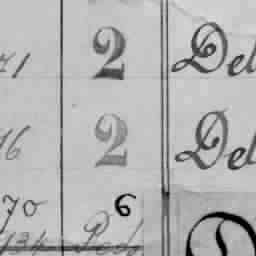 71 2 Del
16 2 Del
70 6
Ped